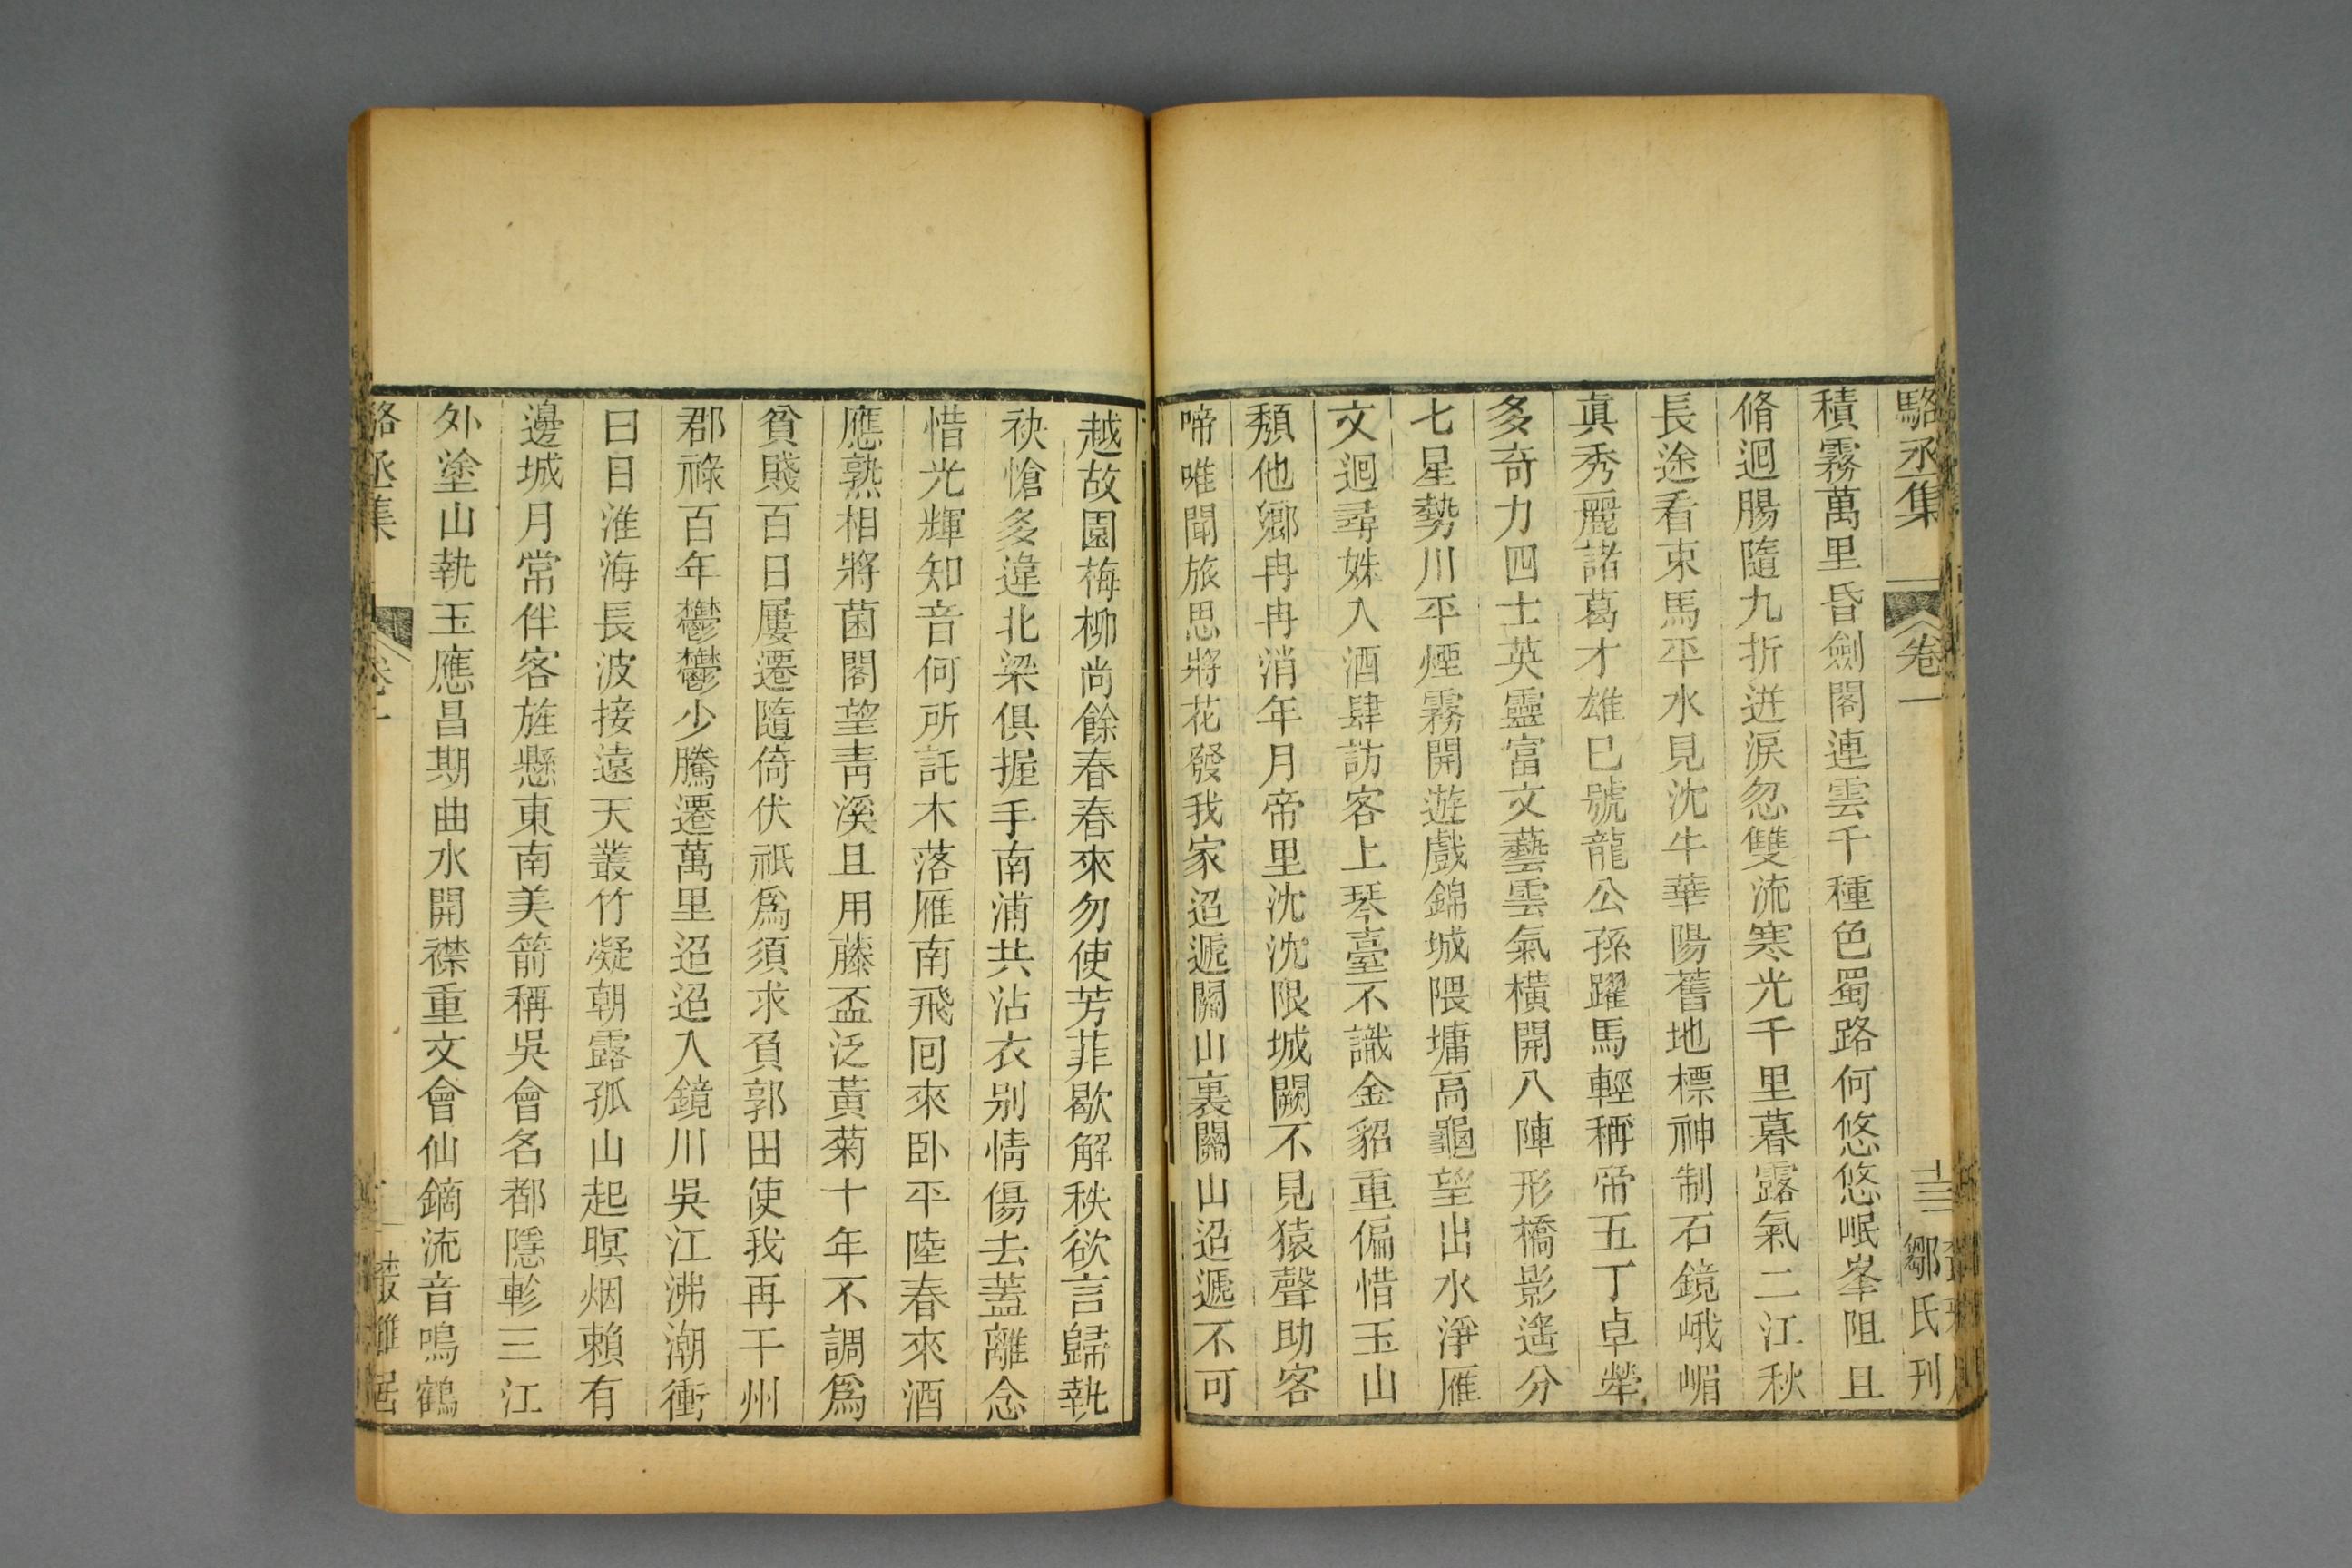 駱丞集　卷一　十三　鄒氏刊
積霧萬里昏劍閣連雲千種色蜀路何悠悠岷峯阻且
脩迴腸隨九折迸淚忽雙流寒光千里暮露氣二江秋
長途看束馬平水見沈牛華陽舊地標神制石鏡峨嵋
真秀麗諸葛才雄已號龍公孫躍馬輕稱帝五丁卓犖
多奇力四士英靈富文藝雲氣橫開八陣形橋影遙分
七星勢川平煙霧開遊戲錦城隈墉高龜望出水淨雁
文迴尋姝入酒肆訪客上琴臺不識金貂重偏惜玉山
頹他鄉冉冉消年月帝里沈沈限城闕不見猿聲助客
啼唯聞旅思將花發我家迢遞關山裏關山迢遞不可
越故園梅柳尚餘春春來勿使芳菲歇解秩欲言歸執
袂愴多違北梁俱握手南浦共沾衣别情傷去蓋離念
惜光輝知音何所託木落雁南飛囘來卧平陸春來酒
應熟相將菌閣望青溪且用藤盃泛黃菊十年不調為
貧賤百日屢遷隨倚伏祇為須求負郭田使我再干州
郡祿百年鬱鬱少騰遷萬里迢迢入鏡川吳江沸潮衝
曰日淮海長波接遠天叢竹凝朝露孤山起暝烟賴有
邊城月常伴客旌懸東南美箭稱吳會名都隱軫三江
外塗山執玉應昌期曲水開襟重文會仙鏑流音鳴鶴
駱丞集　卷一　叢雅居